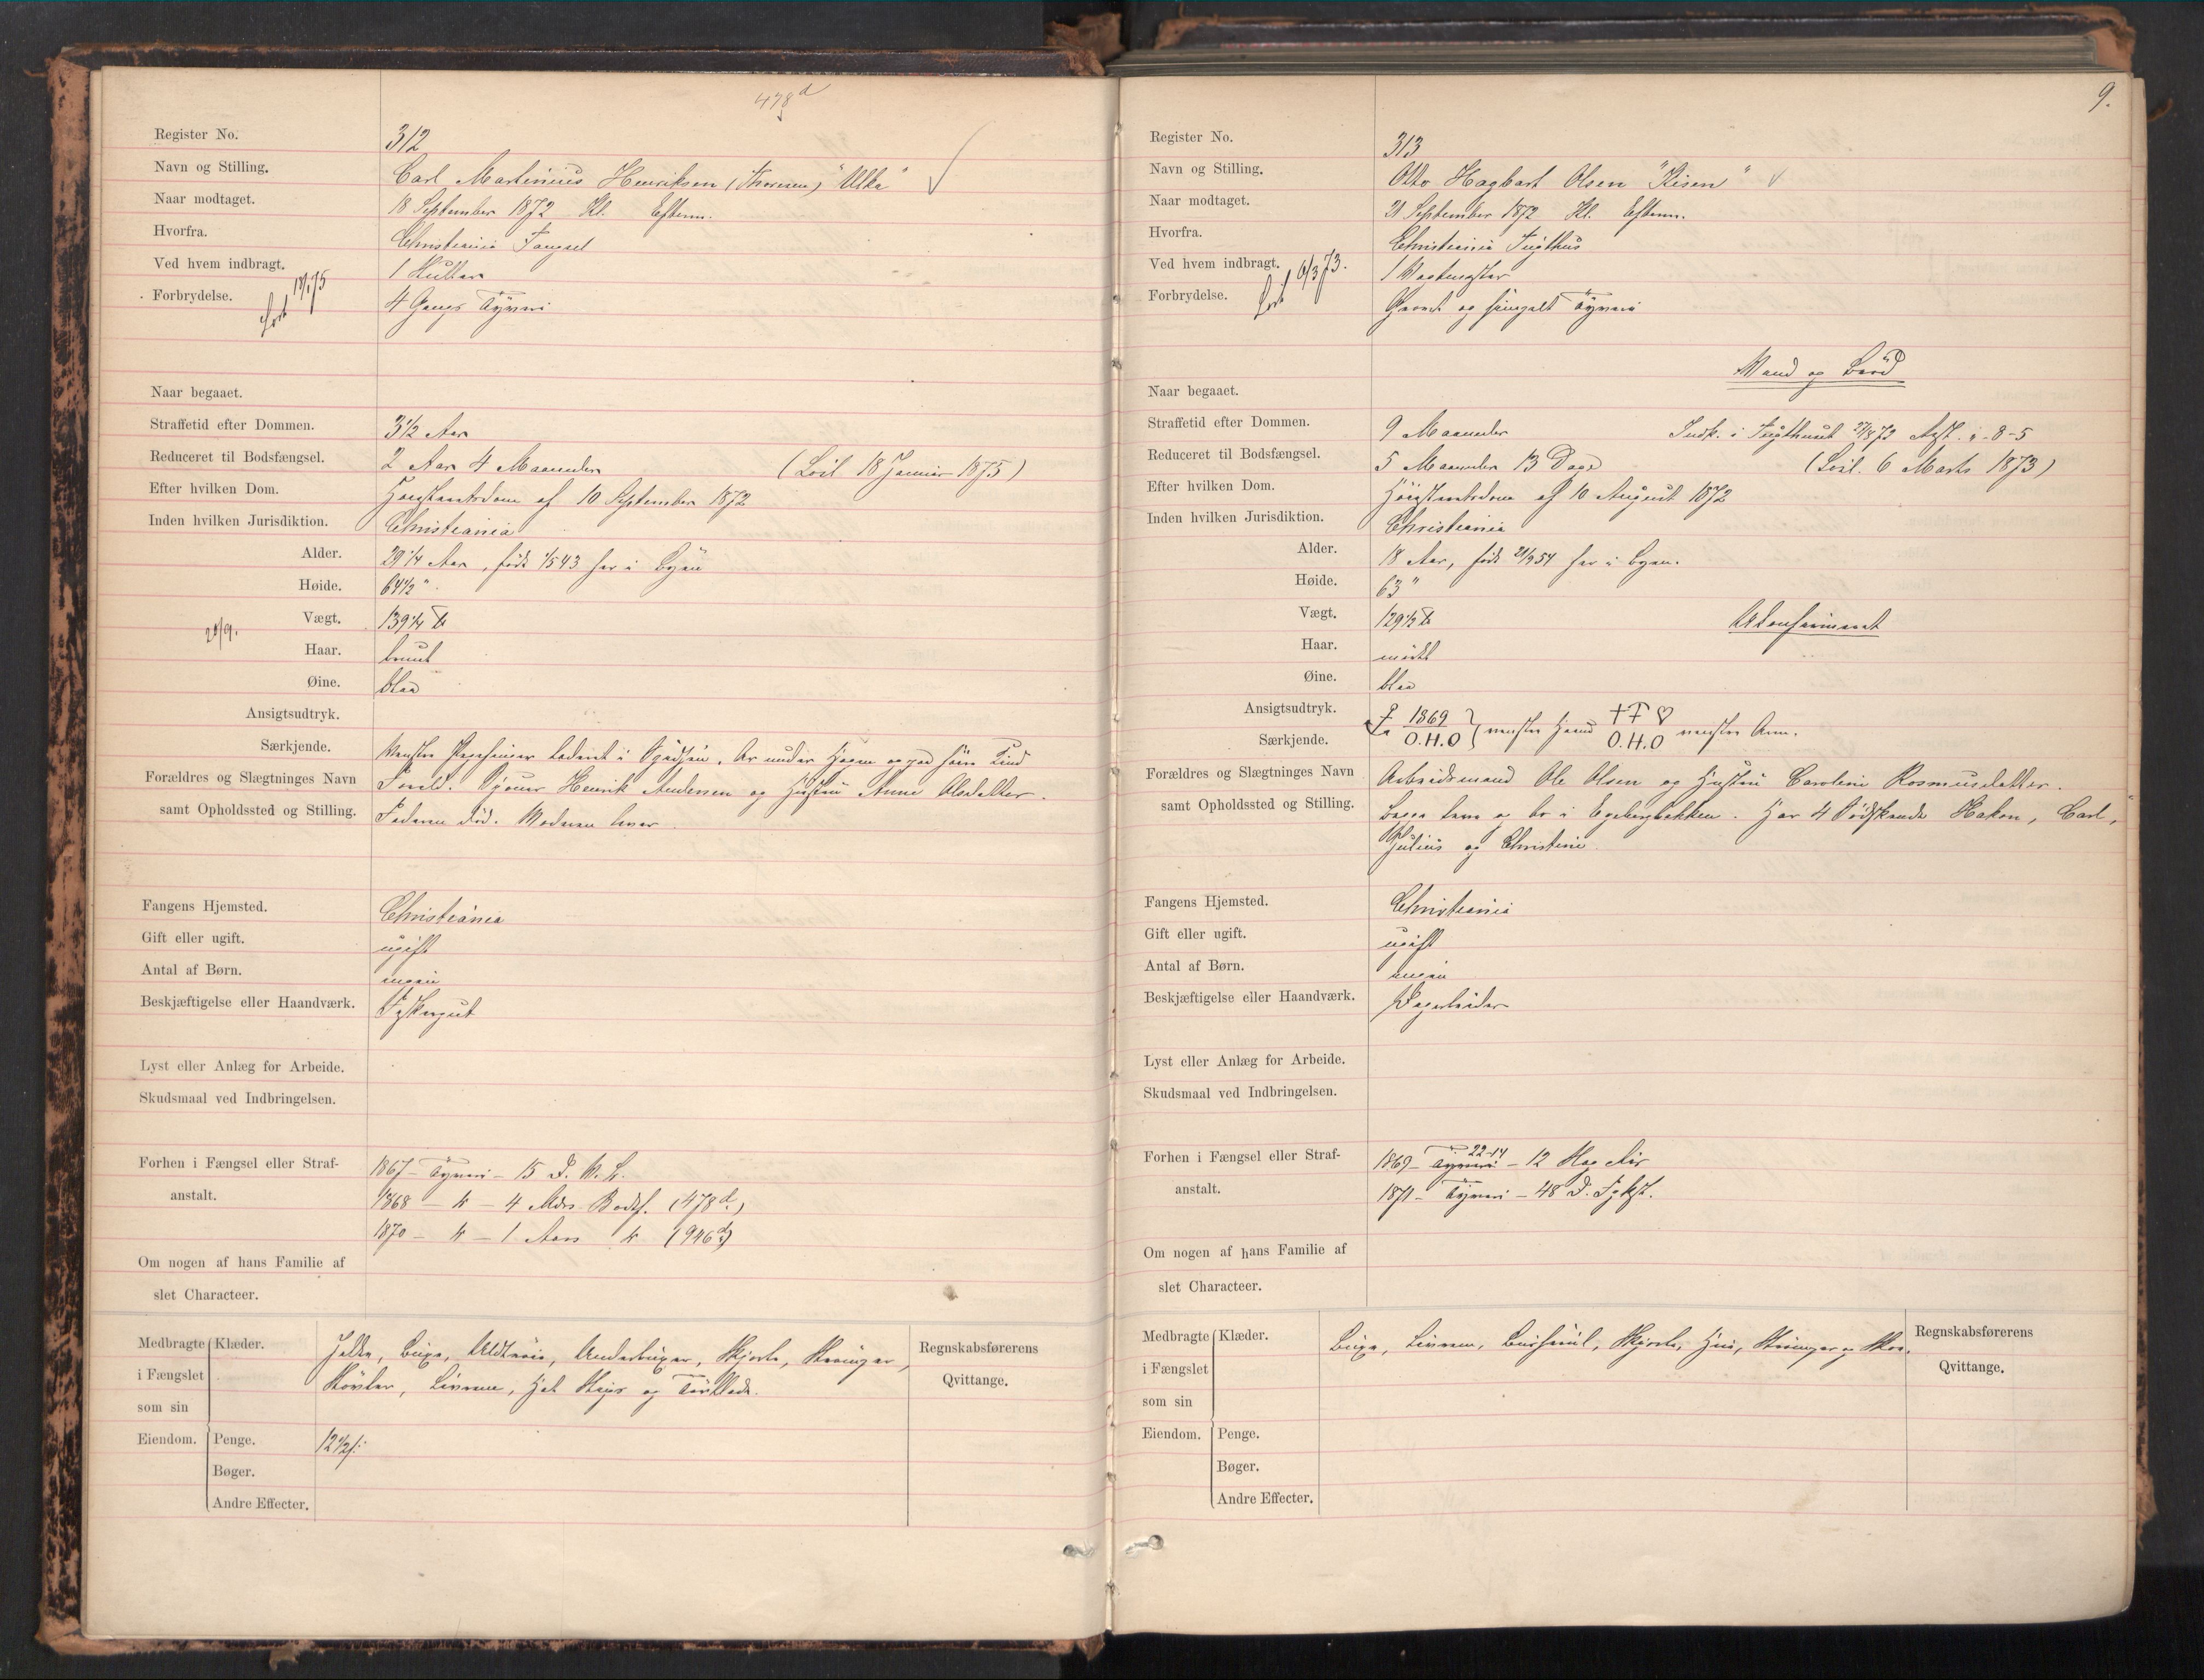 478d
Register No. 312
Navn og Stilling. Carl Martinius Henriksen (Thoresen) "Ulka"
Naar modtaget. 18 September 1872 Kl. Efterm.
Hvorfra. Christiania Fængsel
Ved hvem indbragt. 1
Forbrydelse. 4 Gangs Tyveri
Løst 18/1 75
Naar begaaet.
Straffetid efter Dommen. 3 1/2 Aar
Reduceret til Bodsfængsel. 2 Aar 4 Maaneder (Løsl 18 Januar 1875)
Efter hvilken Dom. Høiesteretsdom af 10 September 1872
Inden hvilken Jurisdiktion. Christiania
Alder. 29 1/4 Aar, født 1/5 43 her i Byen
Høide. 64 1/2"
Vægt. 139 1/4 ℔
20/9.
Haar. brunt
Øine. blaa
Ansigtsudtryk.
Særkjende. Venstre Pegefinger . Ar under Hagen og paa høire Kind
Forældres og Slægtninges Navn Forældr. Henrik Andersen og Hustru Anne Olsdatter.
samt Opholdssted og Stilling. Faderen død. Moderen lever.
Fangens Hjemsted. Christiania
Gift eller ugift. ugift
Antal af Børn. ingen
Beskjæftigelse eller Haandværk. Fyskergut
Lyst eller Anlæg for Arbeide.
Skudsmaal ved Indbringelsen.
Forhen i Fængsel eller Straf- 1867 - Tyveri - 15 D. V. B.
anstalt. 1868 - " - 4 Mdrs Bodsf. (478d.)
1870 - " - 1 Aars " (946d)
Om nogen af hans Familie af
slet Characteer.
Medbragte Klæder. Jakke, Buxe, Uldtrøie, Underbuxer, Skjorte, Strømper,
i Fængslet Støvler, Livrem, Hat og Tørklæde.
som sin
Eiendom. Penge. 12 1/2 ſ.
Bøger.
Andre Effecter.
Regnskabsførerens
Qvittange.
9.
Register No. 313
Navn og Stilling. Otto Hagbart Olsen "Risen"
Naar modtaget. 21 September 1872 Kl. Efterm.
Hvorfra. Christiania Tugthus
Ved hvem indbragt. 1 Vagtmester
Løst 6/3 73.
Forbrydelse. Grovt og simpelt Tyveri
Vand og Brød
Naar begaaet.
Straffetid efter Dommen. 9 Maaneder Indk. i Tugthuset 27/8 72 Afst. i - 8 - 5
Reduceret til Bodsfængsel. 5 Maaneder 13 Dage (Løsl. 6 Marts 1873)
Efter hvilken Dom. Høiesteretsdom af 10 August 1872
Inden hvilken Jurisdiktion. Christiania
Alder. 18 Aar, født 21/9 54 her i Byen.
Høide. 63"
Vægt. 129 1/2 ℔ Ukonfirmeret
Haar. mørkt
Øine. blaa
Ansigtsudtryk. 1869
Særkjende. O.H.O venstre Haand O.H.O venstre Arm.
Forældres og Slægtninges Navn Arbeidsmand Ole Olsen og Hustru Caroline Rasmusdatter.
samt Opholdssted og Stilling. Begge leve og bo i Egebergbakken. Har 4 Sødskende Hakon, Carl,
Julius og Christine.
Fangens Hjemsted. Christiania
Gift eller ugift. ugift
Antal af Børn. ingen
Beskjæftigelse eller Haandværk. Dagarbeider
Lyst eller Anlæg for Arbeide.
Skudsmaal ved Indbringelsen.
Forhen i Fængsel eller Straf- 1869 - Tyveri 22-14 - 12 Slag Ris
anstalt. 1871 - Tyveri - 48 D. Fgskst.
Om nogen af hans Familie af
slet Characteer.
Medbragte Klæder. Buxe, Livrem, Skjorte, Hue, Strømper og Skoe.
i Fængslet
som sin
Eiendom. Penge.
Bøger.
Andre Effecter.
Regnskabsførerens
Qvittange.